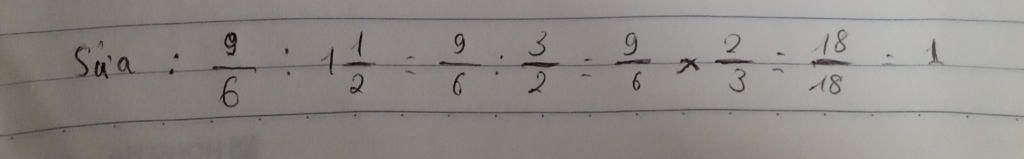 Sửa : 9/6 : 1 1/2 = 9/6 : 3/2 = 9/6 × 2/3 = 18/18 = 1